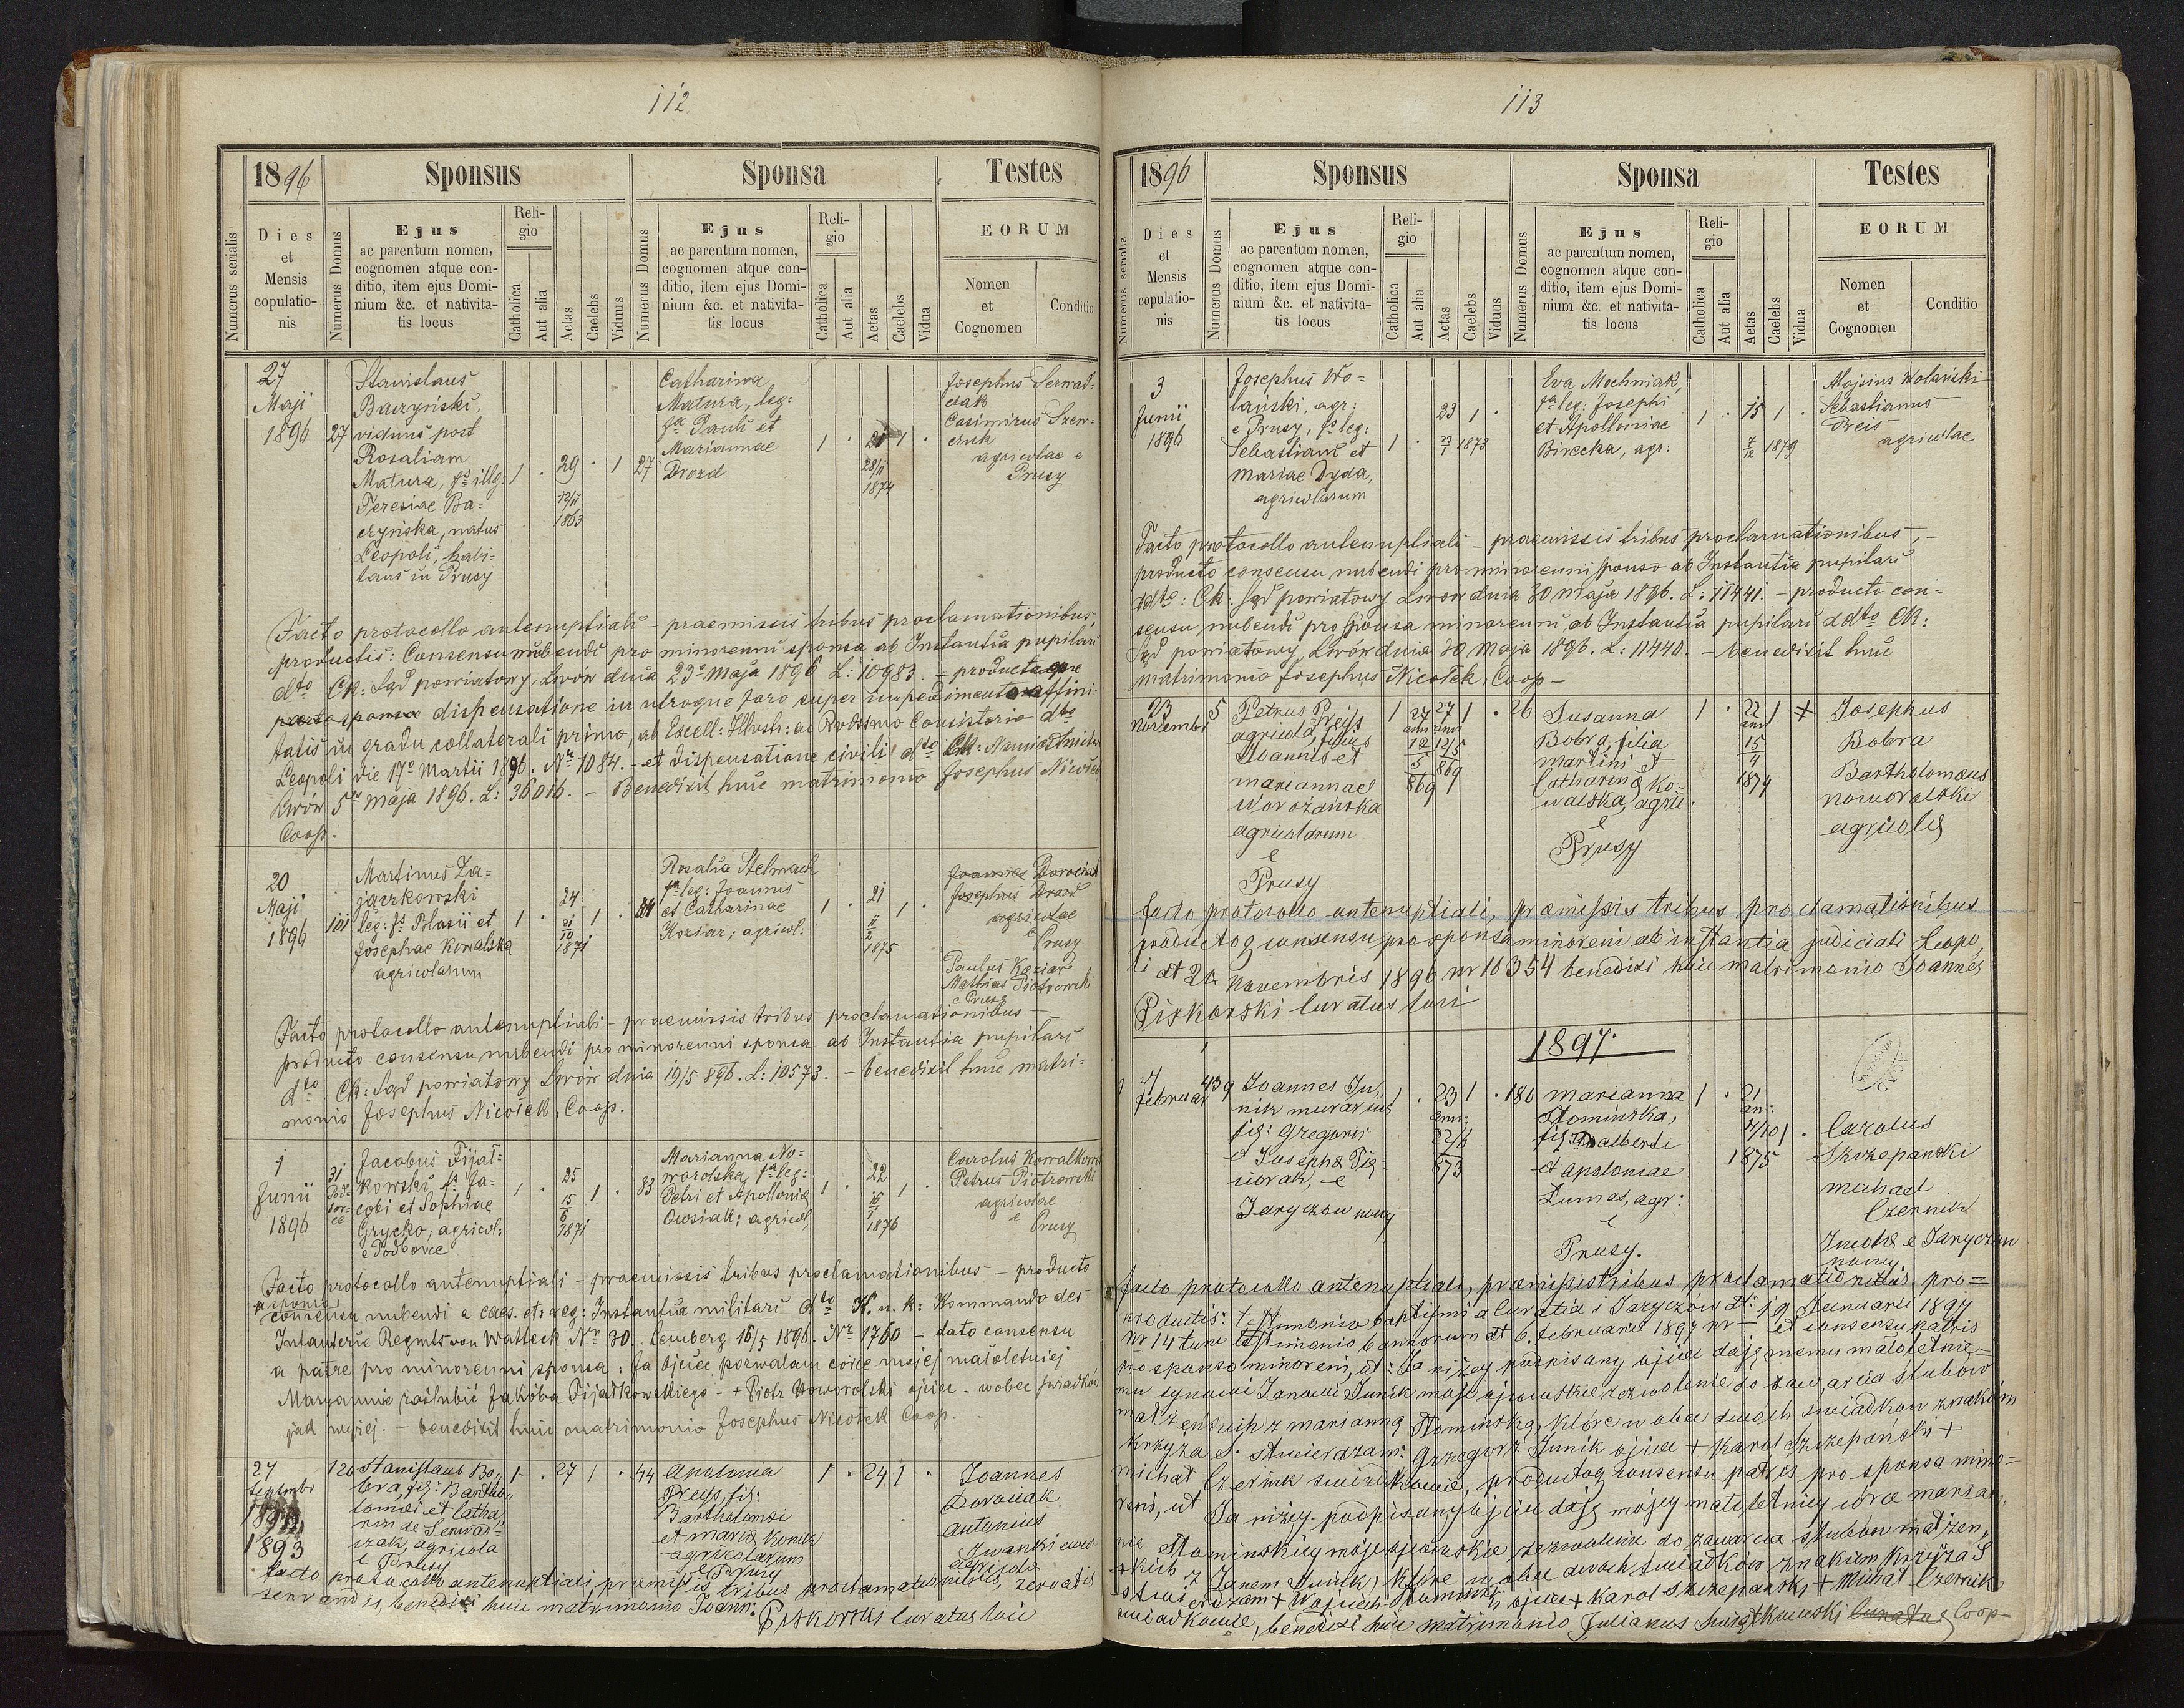 112
1896
Sponsus
Sponsa
Testes
Numerus serialis
Dies
et
Mensis
copulatio-
nis
Numerus Domus
Ejus
ac parentum nomen,
cognomen atque con-
ditio, item ejus Domi-
nium &c. et nativita-
tis locus
Reli-
gio
Catholica
Aut alia
Aetas
Caelebs
Viduus
Numerus Domus
Ejus
ac parentum nomen,
cognomen atque con-
ditio, item ejus Domi-
nium &c. et nativita-
tis locus
Reli-
gio
Catholica
Aut alia
Aetas
Caelebs
Vidua
EORUM
Nomen
et
Cognomen
Conditio
27
Maji
1896
27
Stanislaus
Baczyński,
viduus post
Rosaliam
Matura, fs illg:
Teresiae Ba-
czyńska, natus
Leopoli, habi-
tans in Prusy
1 . 29 . 1
12/11
1863
27
Catharina
Matura, leg:
fa Pauli et
Mariannae
Drozd
1 . 21 1 .
28/11
1874
Josephus Serwad-
czak
Casimirus Szew-
czuk
agricolae e
Prusy
Facto protocollo antenuptiali - praemissis tribus proclamationibus,
productis: Consensu nubendi pro minorenni sponsa ab Instantia pupilari
dto CK: Sąd powiatowy, Lwów dnia 23o Maja 1896 L: 10983. - productaque
dispensatione in utroque foro super impedimento affini-
tatis in gradu collaterali primo, ab Excell: Illustr: ac Rvdssmo Consistorio dto
Leopoli die 17o Martii 1896. Nr 1084. - et dispensatione civili dto CK: Namiestnictwo
Lwów 5go Maja 1896. L: 36016. - Benedixit huic matrimonio Josephus Nicołek
Coop.
20
Maji
1896
101
Martinus Za-
jączkowski
leg: fs Blasii et
Josephae Kowalska
agricolarum
1 . 24 1 .
21
10
1871
Rosalia Stelmach
fa leg: Joannis
et Catharinae
Koziar; agricol.
1 . 21 1 .
11
2
1875
Joannes Dorociak
Josephus Drozd
agricolae
e Prusy
Paulus Koziar
Mathias Piotrowski
e Prusy
Facto protocollo antenuptiali - praemissis tribus proclamationibus -
producto consensu nubendi pro minorenni sponsa ab Instantia pupilari
dto CK: Sąd powiatowy Lwów dnia 19/5 896. L: 10573. - benedixit huic matri-
monio Josephus Nicołek, Coop.
1
Junii
1896
31
Pod-
bor-
ce
Jacobus Fijał-
kowski fs Ja-
cobi et Sophiae
Grycko, agricol:
e Podborce
1 . 25 1 .
15
6
1871
83
Marianna No-
worolska, fa leg:
Petri et Apollonia
Owsiak; agricol
1 . 22 1 .
1876
Carolus Kowalkowski
Petrus Piotrowski
agricolae
e
Prusy
Facto protocollo antenuptiali - praemissis tribus proclamationibus - producto
a sponso
consensu nubendi a caes. et reg: Instantia militari dto K. u. K: Kommando des
Infanterie Regmts von Watteck Nr 30. Lemberg 16/5 1896. Nr 1760 - dato consensu
a patre pro minorenni sponsa: Ja ojciec pozwalam córce mojej małoletniej
Maryannie zaślubić Jakóba Fijałkowskiego - + Piotr Noworolski ojciec - wobec świadków
jak wyżej. - benedixit huic matrimonio Josephus Nicołek Coop.
27
Septembr
1893
120
Stanislaus Bo-
bra, fil: Bartho-
lomei et Catha-
rinae Serwad-
czak, agricola
e Prusy
1 . 27 1 .
44
Apolonia
Preiss, fil:
Bartholomei
et Maria Konik
agricolarum
e Prusy
1 . 24 1 .
Joannes
Dorociak
Antonius
agricolae
facto protocollo antenuptiali, praemissis tribus proclamationibus, servatis
servandis, benedixi huic matrimonio Joann: Piskorski Curatus loci
113
1896
Sponsus
Sponsa
Testes
Numerus serialis
Dies
et
Mensis
copulatio-
nis
Numerus Domus
Ejus
ac parentum nomen,
cognomen atque con-
ditio, item ejus Domi-
nium &c. et nativita-
tis locus
Reli-
gio
Catholica
Aut alia
Aetas
Caelebs
Viduus
Numerus Domus
Ejus
ac parentum nomen,
cognomen atque con-
ditio, item ejus Domi-
nium &c. et nativita-
tis locus
Reli-
gio
Catholica
Aut alia
Aetas
Caelebs
Vidua
EORUM
Nomen
et
Cognomen
Conditio
3
Junii
1896
Josephus Wo-
lański, agr:
e Prusy, fs leg:
Sebastiani et
Mariae Dyda,
agricolarum
1 . 23 1 .
23
1
1873
Eva Mochniak,
fa leg: Josephi
et Apolloniae
Birecka, agr:
1 . 15 1 .
7
12
1879
Alojsius Wolański
Sebastianus
Preis
agricolae
Facto protocollo antenuptiali - praemissis tribus proclamationibus, -
producto consensu nubendi pro minorenni sponso ab Instantia pupilari
ddto: CK: Sąd powiatowy Lwów dnia 30 Maja 1896. L: 11441. - producto con-
sensu nubendi pro sponsa minorenni ab Instantia pupilari ddto CK:
Sąd powiatowy, Lwów dnia 30 Maja 1896. L: 11440. - benedixit huic
matrimonio Josephus Nicołek, Coop -
23
Novembr
5
Petrus Preiss
agricola, filius
Joannis et
Mariannae
Worożańska
agricolarum
e
Prusy
1 27 27 1 .
ann ann
12 12/5
5 869
869
26
Susanna
Bobra, filia
Martini et
Catharina Ko-
walska, agric.
e
Prusy
1 . 22 1 +
ann
15
4
1874
Josephus
Bobra
Bartholomaeus
Noworolski
agricolae
facto protocollo antenuptiali, praemissis tribus proclamationibus
productoq consensu pro sponsa minoreni ab instantia judiciali Leopo-
li dt 20 Novembris 1896 nr 10354 benedixi huic matrimonio Joannes
Piskorski Curatus loci
1897.
1
7
Februar
439
Joannes Ju-
nik murarius
fil: Gregorii
et Josepha Pig-
Jaryczow nowy
1 . 23 1 .
ann:
22/6
873
180
Marianna
Słomińska,
fil: Adalberti
et Apoloniae
Dumas, agr:
e
Prusy.
1 . 21
an:
1 .
1875
Carolus
Szczepański
Michael
Czernik
e Jaryczow
nowy
facto protocollo antenuptiali, praemissis tribus proclamationibus, pro=
productis: testimonio baptismi a Curatia i Jaryczów dt: 19 Januarii 1897
nr 14 tum testimonio bannorum dt 6. februarii 1897 nr — et consensu patris
pro sponso minoreni, ut: Ja niżej podpisany ojciec daję memu małoletnie-
mu synowi Janowi Junik moje ojcowskie zezwolenie do zawarcia ślubów
małżeńskich z Marianną Słomińską, które w obec dwóch świadków znakiem
krzyża S. stwierdzam: Grzegorz Junik ojciec + Karol Szczepański +
Michał Czernik świadkowie, productoq consensu patris pro sponsa mino-
reni, ut Ja niżej podpisany ojciec daję mojej małoletniej córce Marian-
nie Słomińskiej moje ojcowskie zezwolenie do zawarcia ślubów małżeń-
skich z Janem Junik, które w obec dwóch świadków znakiem krzyża S
stwierdzam + Wojciech Słomiński ojciec + Karol Szczepański + Michał Czernik
świadkowie, benedixi huic matrimonio Julianus Swiątkowski Curatus Coop-